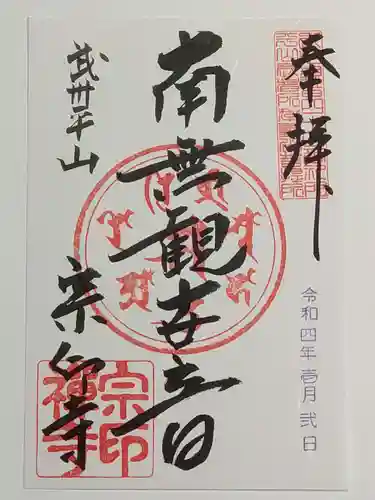 奉拝
令和四年壱月弐日
南無観世音
武州平山
宗印寺
宗印禅寺